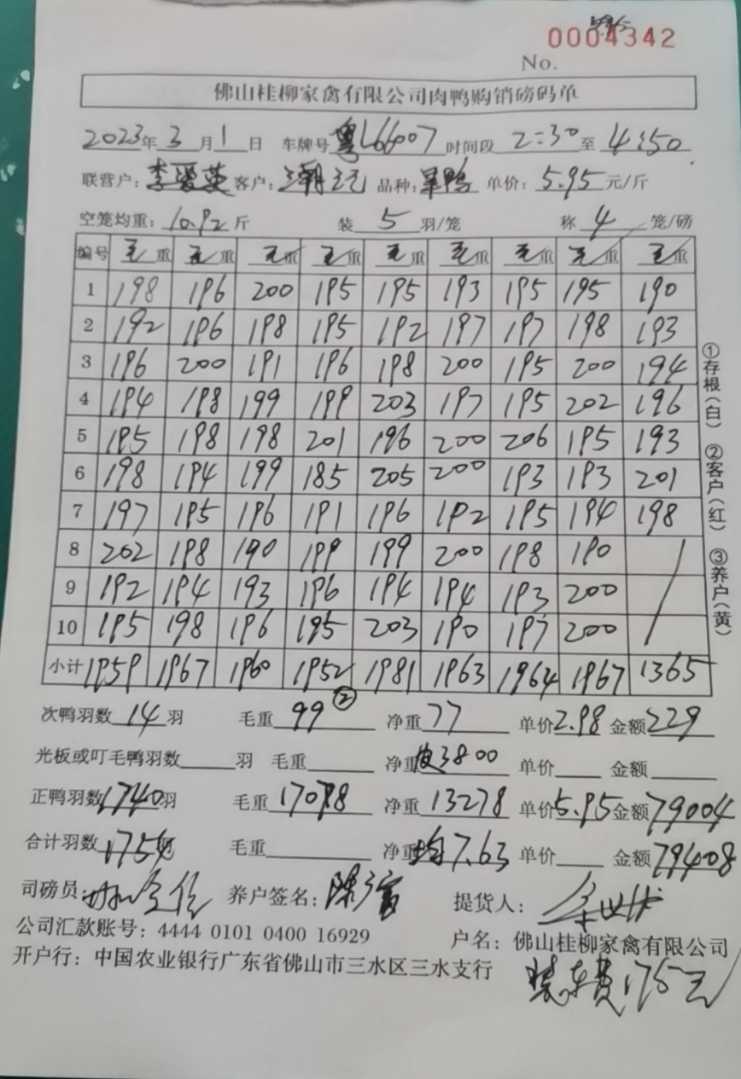 0004342
No.
佛山桂柳家禽有限公司肉鸭购销磅码单
2023年 3 月 1 日 车牌号 粤L66007 时间段 2:30 至 4:50
联营户: 李爱英 客户: 潮 品种: 单价: 5.95 元/斤
空笼均重: 10.92 斤 装 5 羽/笼 称 4 笼/磅
编号 毛重 毛重 毛重 毛重 毛重 毛重 毛重 毛重 毛重
1 198 196 200 195 195 193 195 195 190
2 192 196 198 195 192 197 197 198 193
3 196 200 191 196 198 200 195 200 194
4 194 198 199 199 203 197 195 202 196
5 195 198 198 201 196 200 206 195 193
6 198 194 199 185 205 200 193 193 201
7 197 195 196 191 196 192 195 194 198
8 202 198 190 199 199 200 198 190
9 192 194 193 196 194 194 193 200
10 195 198 196 195 203 190 197 200
小计 1959 1967 1960 1952 1981 1963 1964 1967 1365
次鸭羽数 14 羽 毛重 99 ② 净重 77 单价 2.98 金额 229
光板或叮毛鸭羽数 羽 毛重 净重 皮3800 单价 金额
正鸭羽数 1740 羽 毛重 17078 净重 13278 单价 5.95 金额 79004
合计羽数 1754 毛重 净重 均7.63 单价 金额 79408
司磅员: 养户签名: 陈 提货人:
公司汇款账号: 4444 0101 0400 16929 户名: 佛山桂柳家禽有限公司
开户行: 中国农业银行广东省佛山市三水区三水支行
装车费175元
①存根(白) ②客户(红) ③养户(黄)